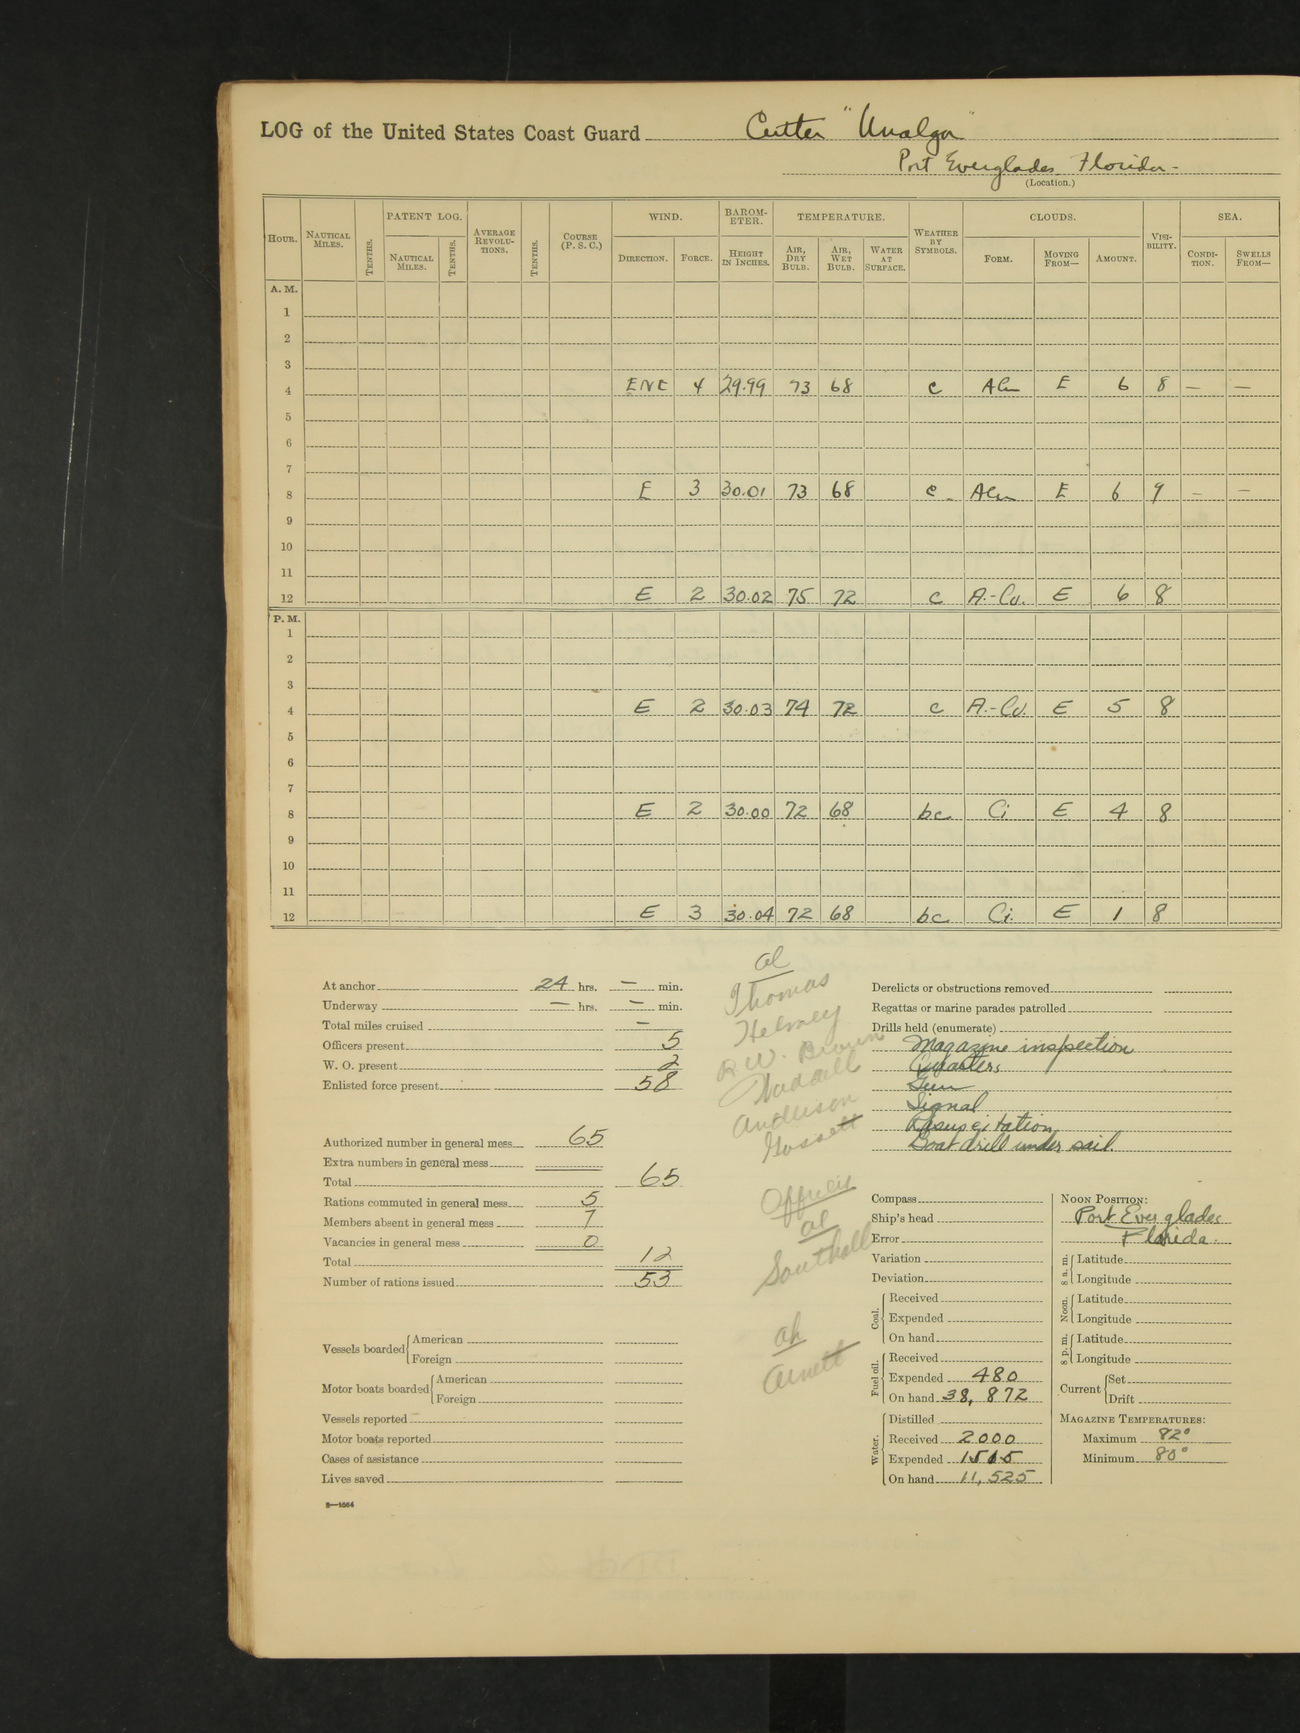 LOG of the United States Coast Guard Cutter "Unalga"
Port Everglades, Florida-
(Location.)
HOUR. NAUTICAL MILES. TENTHS. PATENT LOG. NAUTICAL MILES. TENTHS. AVERAGE REVOLU-TIONS. TENTHS. COURSE (P. S. C.) WIND. DIRECTION. FORCE. BAROM-ETER. HEIGHT IN INCHES. TEMPERATURE. AIR, DRY BULB. AIR, WET BULB. WATER AT SURFACE. WEATHER BY SYMBOLS. CLOUDS. FORM. MOVING FROM— AMOUNT. VISI-BILITY. SEA. CONDI-TION. SWELLS FROM—
A. M.
1
2
3
4 ENE 4 29.99 73 68 c ACu E 6 8 — —
5
6
7
8 E 3 30.01 73 68 c ACu E 6 9 — —
9
10
11
12 E 2 30.02 75 72 c A.-Cu. E 6 8
P. M.
1
2
3
4 E 2 30.03 74 72 c A.-Cu. E 5 8
5
6
7
8 E 2 30.00 72 68 bc Ci E 4 8
9
10
11
12 E 3 30.04 72 68 bc Ci. E 1 8
At anchor 24 hrs. — min.
Underway — hrs. — min.
Total miles cruised —
Officers present 5
W. O. present 2
Enlisted force present 58
Authorized number in general mess 65
Extra numbers in general mess
Total 65
Rations commuted in general mess 5
Members absent in general mess 7
Vacancies in general mess 0
Total 12
Number of rations issued 53
Vessels boarded American
Foreign
Motor boats boarded American
Foreign
Vessels reported
Motor boats reported
Cases of assistance
Lives saved
8—1564
al
Thomas
Helmey
R.W. Brown
Waddell
Anderson
Gossett
Officers
al
Southall
ah
Arnett
Derelicts or obstructions removed
Regattas or marine parades patrolled
Drills held (enumerate)
Magazine inspection
Quarters
Gun
Signal
Resuscitation
Boat drill under sail.
Compass
Ship's head
Error
Variation
Deviation
Coal. Received
Expended
On hand
Fuel oil. Received
Expended 480
On hand 38,872
Water. Distilled
Received 2000
Expended 1515
On hand 11,525
NOON POSITION:
Port Everglades
Florida.
8 a. m. Latitude
Longitude
Noon. Latitude
Longitude
8 p. m. Latitude
Longitude
Current Set
Drift
MAGAZINE TEMPERATURES:
Maximum 82°
Minimum 80°